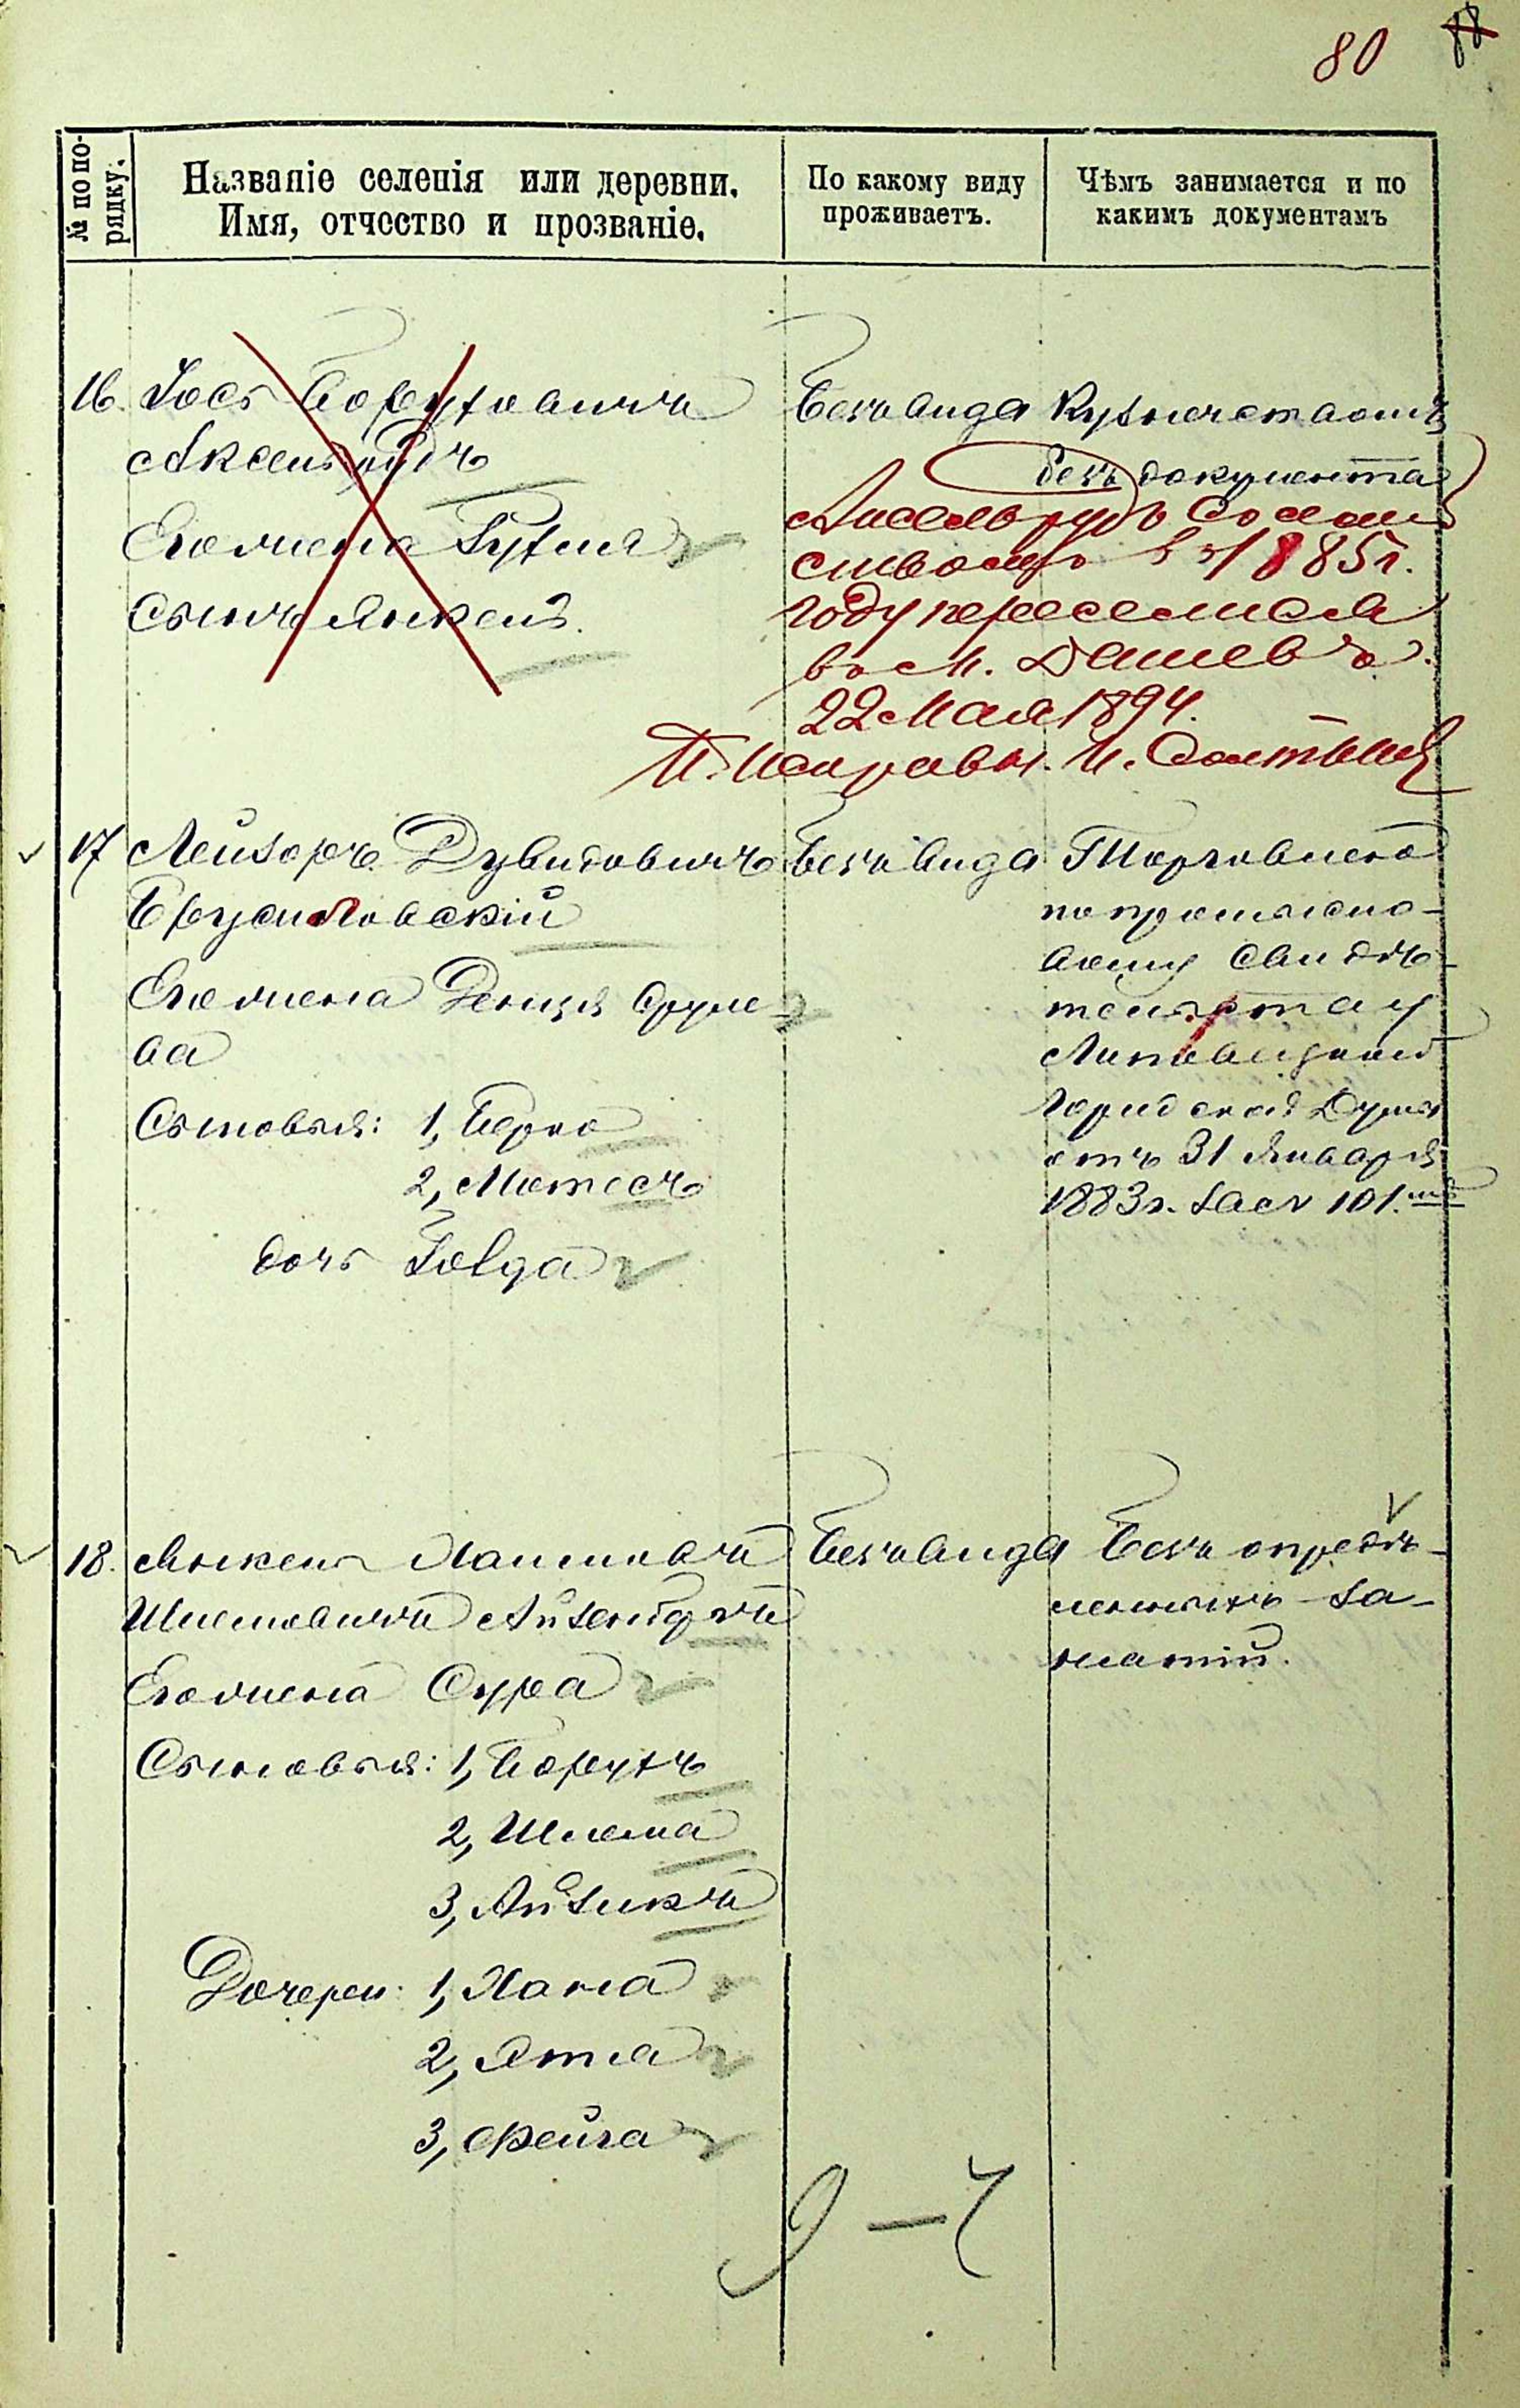 80
№ по по-
рядку.
Названіе селенія или деревни.
Имя, отчество и прозваніе.
По какому виду
проживаетъ.
Чѣмъ занимается и по
какимъ документамъ
16. Іось Борухович
Аксельрудъ
Его жена Рухля
Сынъ Янкель.
Безъ вида
Кузнечествомъ
безъ документа
Аксельрудъ съ семей
ствомъ въ 1885 г.
году переселился
въ м. Дашевъ.
22 Мая 1894.
П. Исправн. И.
17 Лейзоръ Дувидовичъ
Брусиловскій
Его жена Сруле-
ва
Сыновья: 1, Берко
2, Мотесъ
дочь Голда
Безъ вида
Торговлею
по промысло-
вому свидѣ-
тельству
Липовецкой
Городской Думы
отъ 31 Января
1883 г. за № 101.
18. Янкель Хаимовъ
Шлемовичъ
Его жена Сура
Сыновья: 1, Борухъ
2, Шлема
3, Айзикъ
Дочери: 1, Хана
2, Ятла
3, Фейга
Безъ вида
Безъ опредѣ-
ленныхъ за-
нятій.
9 — 7